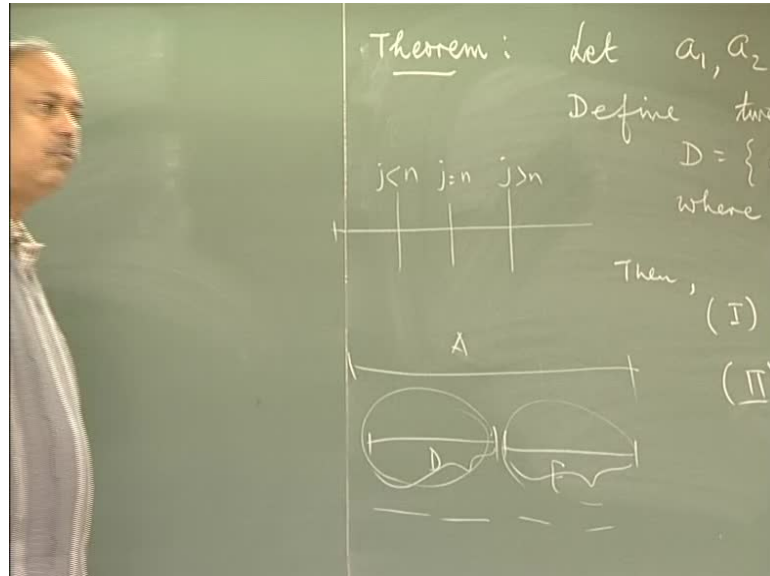 Theorem: Let a₁, a₂
Define two
D = {
where
j<n j=n j>n
Then,
(I)
(II)
A
D E